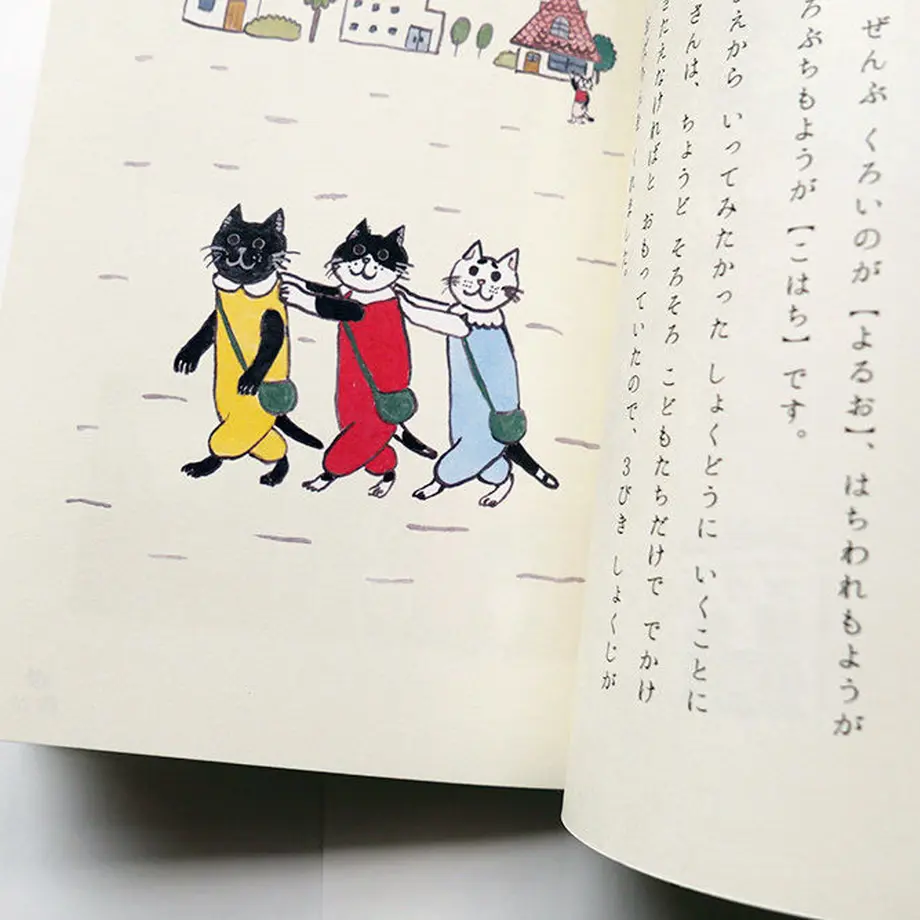 ぜんぶ くろいのが【よるお】、はちわれもようが
ろぶちもようが【こはち】です。
えから いってみたかった しょくどうに いくことに
さんは、ちょうど そろそろ こどもたちだけで でかけ
たえなければと おもっていたので、3びき しょくじが